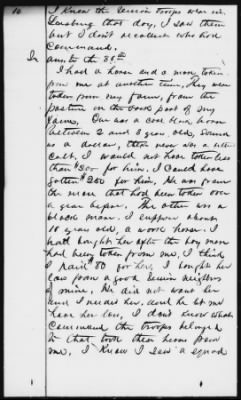 10
I knew the Union troops were in
Leesburg that day, I saw them
but I don't recollect who had
command.
In ans. to the 35th
I had a horse and a mare taken
from me at another time, They were
taken from my farm, from the
pasture on the back part of my
farm, One was a colt blue brown
between 2 and 3 years old, sound
as a dollar, there never was a likelier
colt, I would not have taken less
than $300 for him, I could have
gotten $250 for him, He was from
the mare that had been taken over
a year before. The other was a
black mare. I suppose about
10 year old, a work horse. I
had bought her after the bay mare
had been taken from me, I think
I paid $80 for her, I bought her
low from a good Union neighbor
of mine, He did not want her
and I needed her, and he let me
have her low, I don't know what
command the troops belonged
to that took these horses from
me, I know I saw a squad